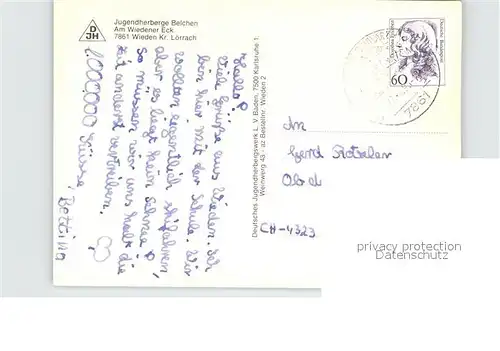 Jugendherberge Belchen
Am Wiedener Eck
7861 Wieden Kr. Lörrach
DJH
Hallo!
Viele Grüße aus Wieden. Ich
bin hier mit der Schule. Wir
wollten eigentlich skifahren
aber es liegt kein Schnee,
so müssen wir uns halt die
Zeit anderst vertreiben.
1000000 Grüsse,
Bettina
Deutsches Jugendherbergswerk L. V. Baden, 7500 Karlsruhe 1
Weinweg 43 · az Bestellnr. Wieden 2
60
7861
An
Gerd
CH-4323
privacy protection
Datenschutz